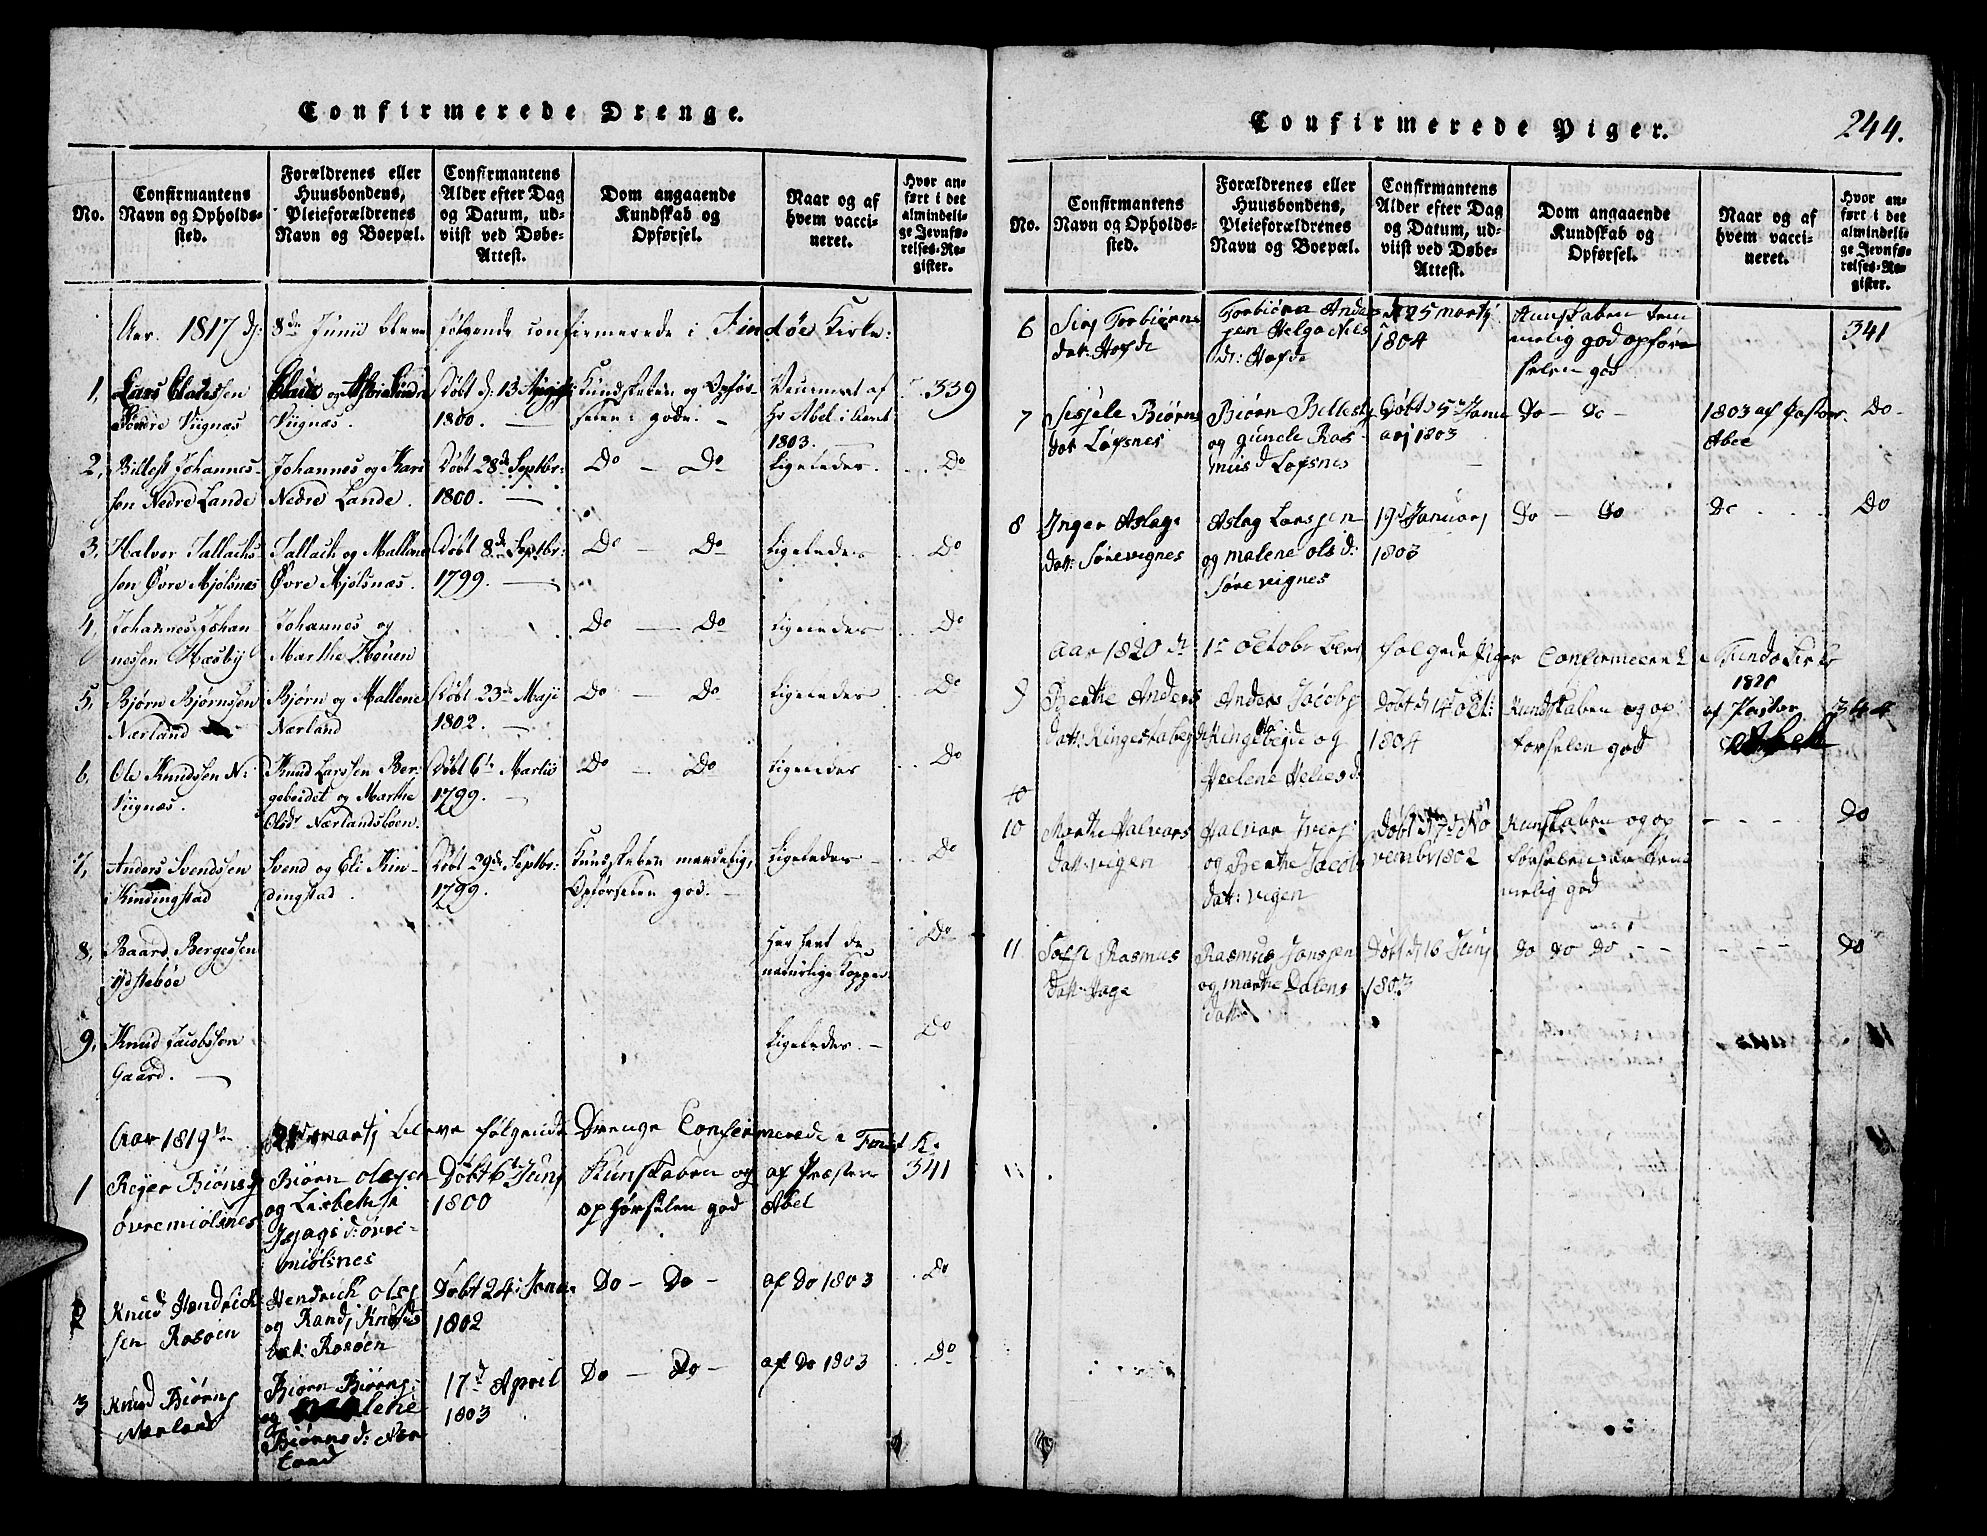 Confirmerede Drenge.
No.
Confirmantens Navn og Opholds-sted.
Forældrenes eller Huusbondens, Pleieforældrenes Navn og Boepæl.
Confirmantens Alder efter Dag og Datum, ud-viist ved Døbe-Attest.
Dom angaaende Kundskab og Opførsel.
Naar og af hvem vacci-neret.
Hvor an-ført i det almindeli-ge Jevnfø-relses-Re-gister.
Aar 1817 d: 8de Junii bleve følgende confirmerede i Findøe Kirke:
1, Lars
Viignæs
Viignæs.
Døbt d: 13 1800.
Kundskaben og Opfør-selen gode.
af Hr Abel i 1803.
339
2, Johannes-sen Nedre Lande
Johannes og Kari Nedre Lande.
Døbt 28de Septbr: 1800.
Do — Do
Ligeledes.
Do
3, Halvor Tallachs-sen Øvre Mjølsnæs
Tallach og Mallene Øvre Mjølsnæs.
Døbt 8de Septbr: 1799.
Do — Do
Ligeledes
Do
4, Johannes Johan-nessen Hæsby
Johannes og Marthe
Do — Do
Ligeledes
Do
5, Bjørn Bjørnssen Nærland
Bjørn og Mallene Nærland
Døbt 23de Maji 1802.
Do — Do
Ligeledes
Do
6, Ole Knudssen N: Viignæs.
Knud Larssen Ber-gebeidet og Marthe Olsdr Nærlandsbøen.
Døbt 6te Martii 1799.
Do — Do
Ligeledes
Do
7, Anders Svendssen Kindingstad
Svend og Eli Kin-dingstad.
Døbt 29de Septbr: 1799.
Kundskaben maadelig, Opførselen god.
Ligeledes
Do
8, Baard Bergessen Ydstebøe
Har havt de naturlige Kopper
Do
9, Knud Jacobssøn Gaard.
Ligeledes.
Do
Aar 1819 martj bleve følgende Drenge Confirmerede i K:
1 Reyer Biørns øvremiölsnes
Biørn olsen og Lisbeth d: øvre miølsnes
Døbt 6t Junj 1800
Kunskaben og opførselen god
af Præsten Abel
341
2 Knud Hendrick sen Rosøen
Hendrich olss og Randj Knuds dat: Rosøen
Døbt 24 1802
Do — Do —
af Do 1803
Do
3 Knud Biørns Nærland
Biørn Biørns og Biørns d: Nær land
17d April 1803
Do — Do —
af Do 1803
Do
Confirmerede Piger.
244.
No.
Confirmantens Navn og Opholds-sted.
Forældrenes eller Huusbondens, Pleieforældrenes Navn og Boepæl.
Confirmantens Alder efter Dag og Datum, ud-viist ved Døbe-Attest.
Dom angaaende Kundskab og Opførsel.
Naar og af hvem vacci-neret.
Hvor an-ført i det almindeli-ge Jevnfø-relses-Re-gister.
6 Torbiørns dat: Hofde
Torbiörn Ander sen Helga Nils d: Hofde
25 martj 1804
Kunskaben tem melig god opføre selen god
341
7 Sesjele Biørns dat Lofsnes
Biørn og gunele Ras mus d Lofsnes
Døbt 5 Janu arj 1803
Do — Do —
1803 af Pastor Abel
Do
8 Inger Aslags dat: Sørevignes
Aslag Larssen og malene ols d: Sørevignes
19d Januarj 1803
Do — Do
Do
Do
Aar 1820 d 1e octobr blev følgede Piger Confirmeret
9 Berthe Anders datt: Ringestabeyde
Anders Jacobs Ringstabeyde og Heelene Helles d
Døbt d 14 oct: 1804
Kundskaben og op förselen god
af Pastor Abel
344
10
10 Marthe Halvors datt: vigen
Halvor Ivers og Berthe Jacobs datt: vigen
Døbt d 7d No vembr 1802
Kunskaben og op førselen er tem melig god
Do
11 Rasmus datt: Hage
Rasmus Jonssen og marthe datt:
Døbt d 16 Junj
Do Do Do
Do
11